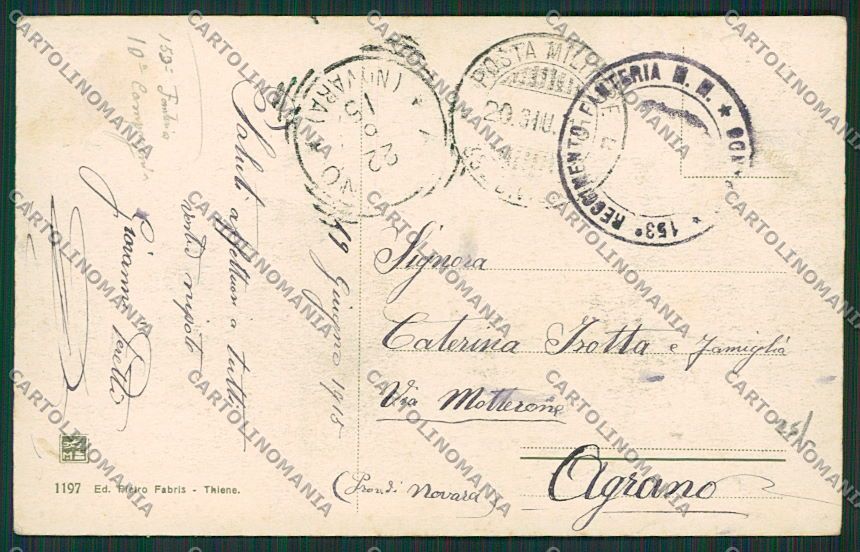 153° Fanteria
10ª Compagnia
19 Giugno 1915
Saluti affettuosi a tutti
vostro nipote
Giovanni
1197 Ed. Pietro Fabris - Thiene.
(NOVARA)
22
15
POSTA MILITARE
20. GIU.
153° REGGIMENTO FANTERIA M. M. ★
Signora
Caterina Trotta e famiglia
Via Motterone
Agrano
(Prov. di Novara)
25/
CARTOLINOMANIA